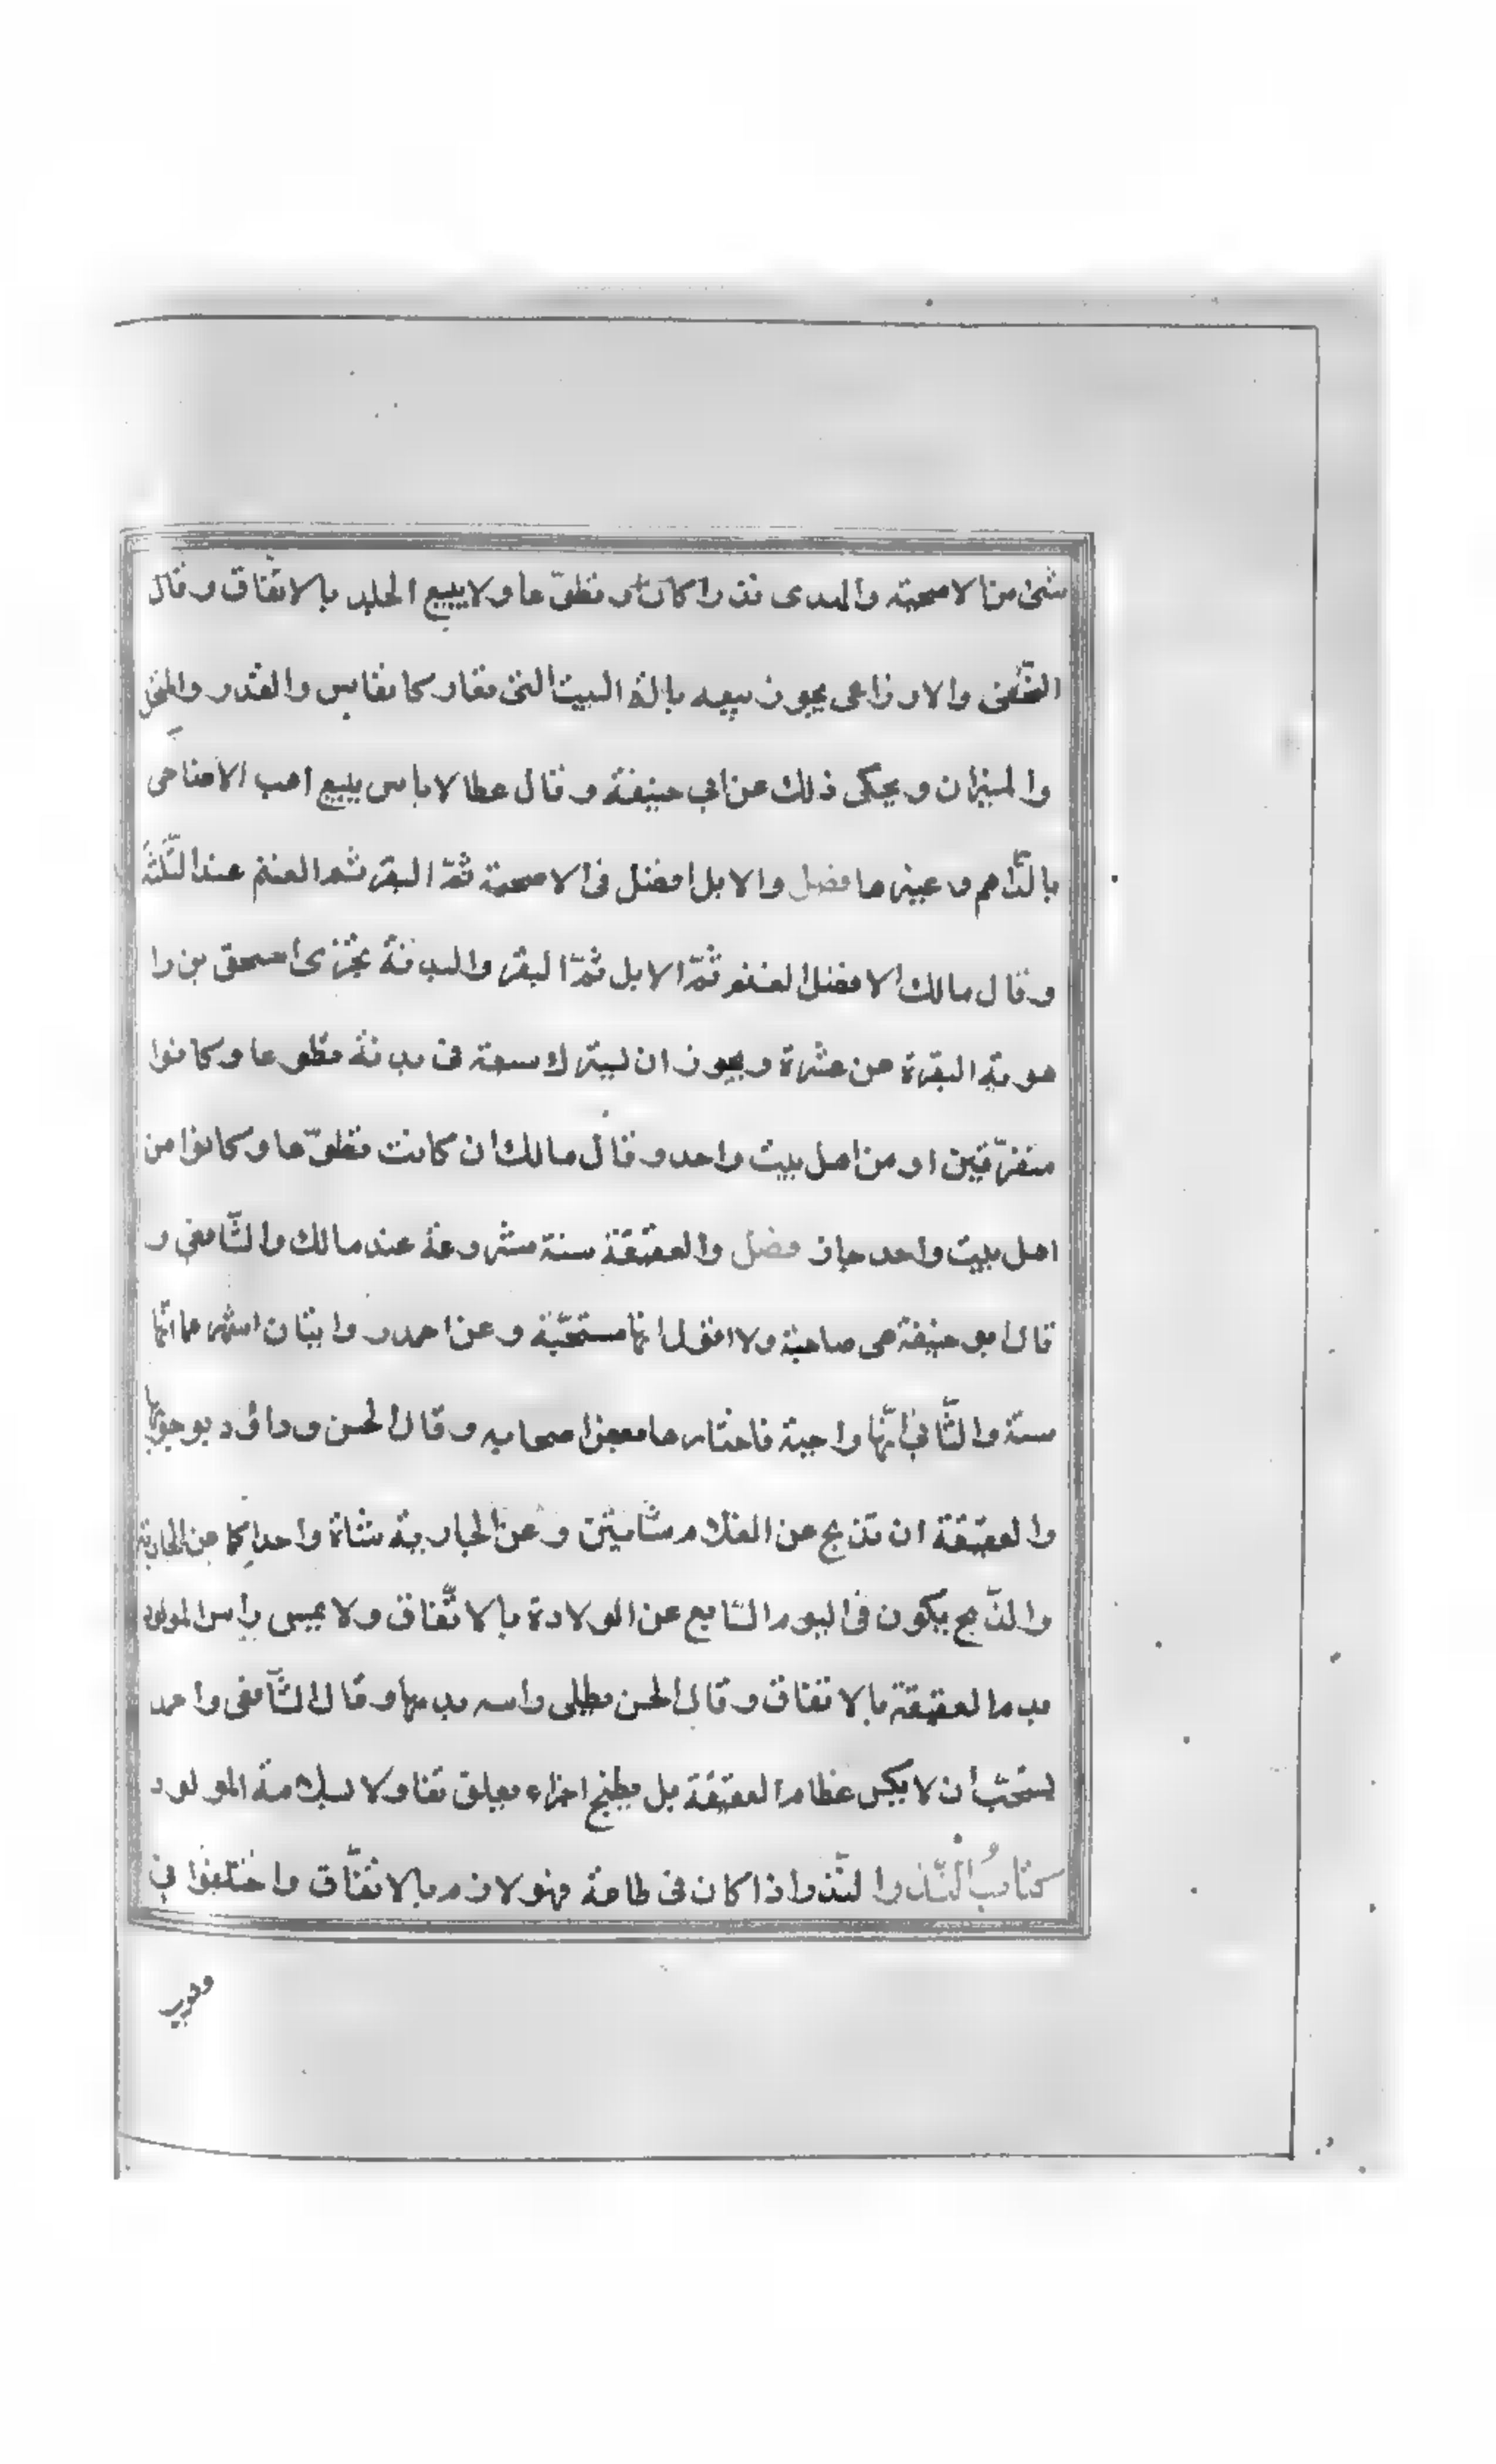 شئ من الاضحية والهدى نذرا كان او تطوّعا ولا يبيع الجلد بالاتفاق وقال
النّخعى والاوزاعى يجوز بيعه بالة البيت التى تعار كالفاس والقدر والمنخل
والميزان ويحكى ذلك عن ابي حنيفة وقال عطا لا باس ببيع اهب الاضاحى
بالدّراهم وغيرها فضل والابل افضل فى الاضحية ثمّ البقر ثم الغنم عند الثّلثة
وقال مالك الافضل الغنم ثمّ الابل ثمّ البقر والبدنة تجزى اسحق بن را
هويه البقرة عن عشرة ويجوز ان يشترك سبعة فى بدنة تطوعا وكانوا
متفرّقين او من اهل بيت واحد وقال مالك ان كانت تطوّعا وكانوا من
اهل بيت واحد جاز فضل والعقيقة سنة مشروعة عند مالك والشّافعي و
قال ابو حنيفة هى مباحة ولا اقول انها مستحبّة وعن احمد روايتان اشهرهما انّها
سنّة والثّاني انّها واجبة فاختارها بعض اصحابه وقال الحسن وداؤد بوجوبها
والعقيقة ان تذبح عن الغلام شاتين وعن الجارية شاة واحدا كما عن الجارية
والذّبح يكون فى اليوم السّابع عن الولادة بالاتّفاق ولا يمس راس المولود
بدم العقيقة بالاتفاق وقال الحسن يطلى راسه بدمها وقال الشّافعى واحمد
يستحبّ ان لا يكس عظام العقيقة بل يطبخ اجزاء تعلق تفاولا لسلامة المولود
كتابُ النّذر والنّذر اذا كان فى طاعة فهو لازم بالاتفّاق واختلفوا في